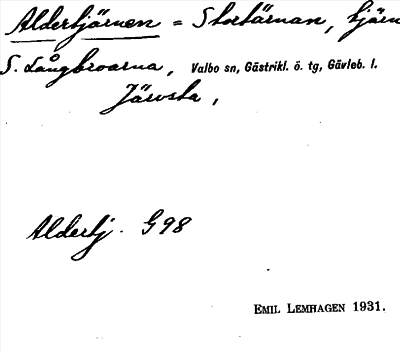 Aldertjärnen = Stortärnan, tjärn
S. Långbroarna, Valbo sn, Gästrikl. ö. tg, Gävleb. l.
Järvsta,
Aldertj. G98
EMIL LEMHAGEN 1931.